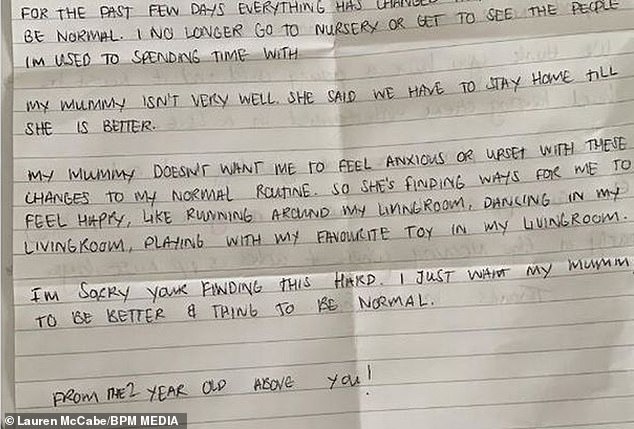 FOR THE PAST FEW DAYS EVERYTHING HAS CHANGED
BE NORMAL. I NO LONGER GO TO NURSERY OR GET TO SEE THE PEOPLE
I'M USED TO SPENDING TIME WITH
MY MUMMY ISN'T VERY WELL. SHE SAID WE HAVE TO STAY HOME TILL
SHE IS BETTER.
MY MUMMY DOESN'T WANT ME TO FEEL ANXIOUS OR UPSET WITH THESE
CHANGES TO MY NORMAL ROUTINE. SO SHE'S FINDING WAYS FOR ME TO
FEEL HAPPY, LIKE RUNNING AROUND MY LIVINGROOM, DANCING IN MY
LIVINGROOM, PLAYING WITH MY FAVOURITE TOY IN MY LIVINGROOM.
I'M SORRY YOUR FINDING THIS HARD. I JUST WANT MY MUMM
TO BE BETTER & THING TO BE NORMAL.
FROM THE 2 YEAR OLD ABOVE YOU!
© Lauren McCabe/BPM MEDIA